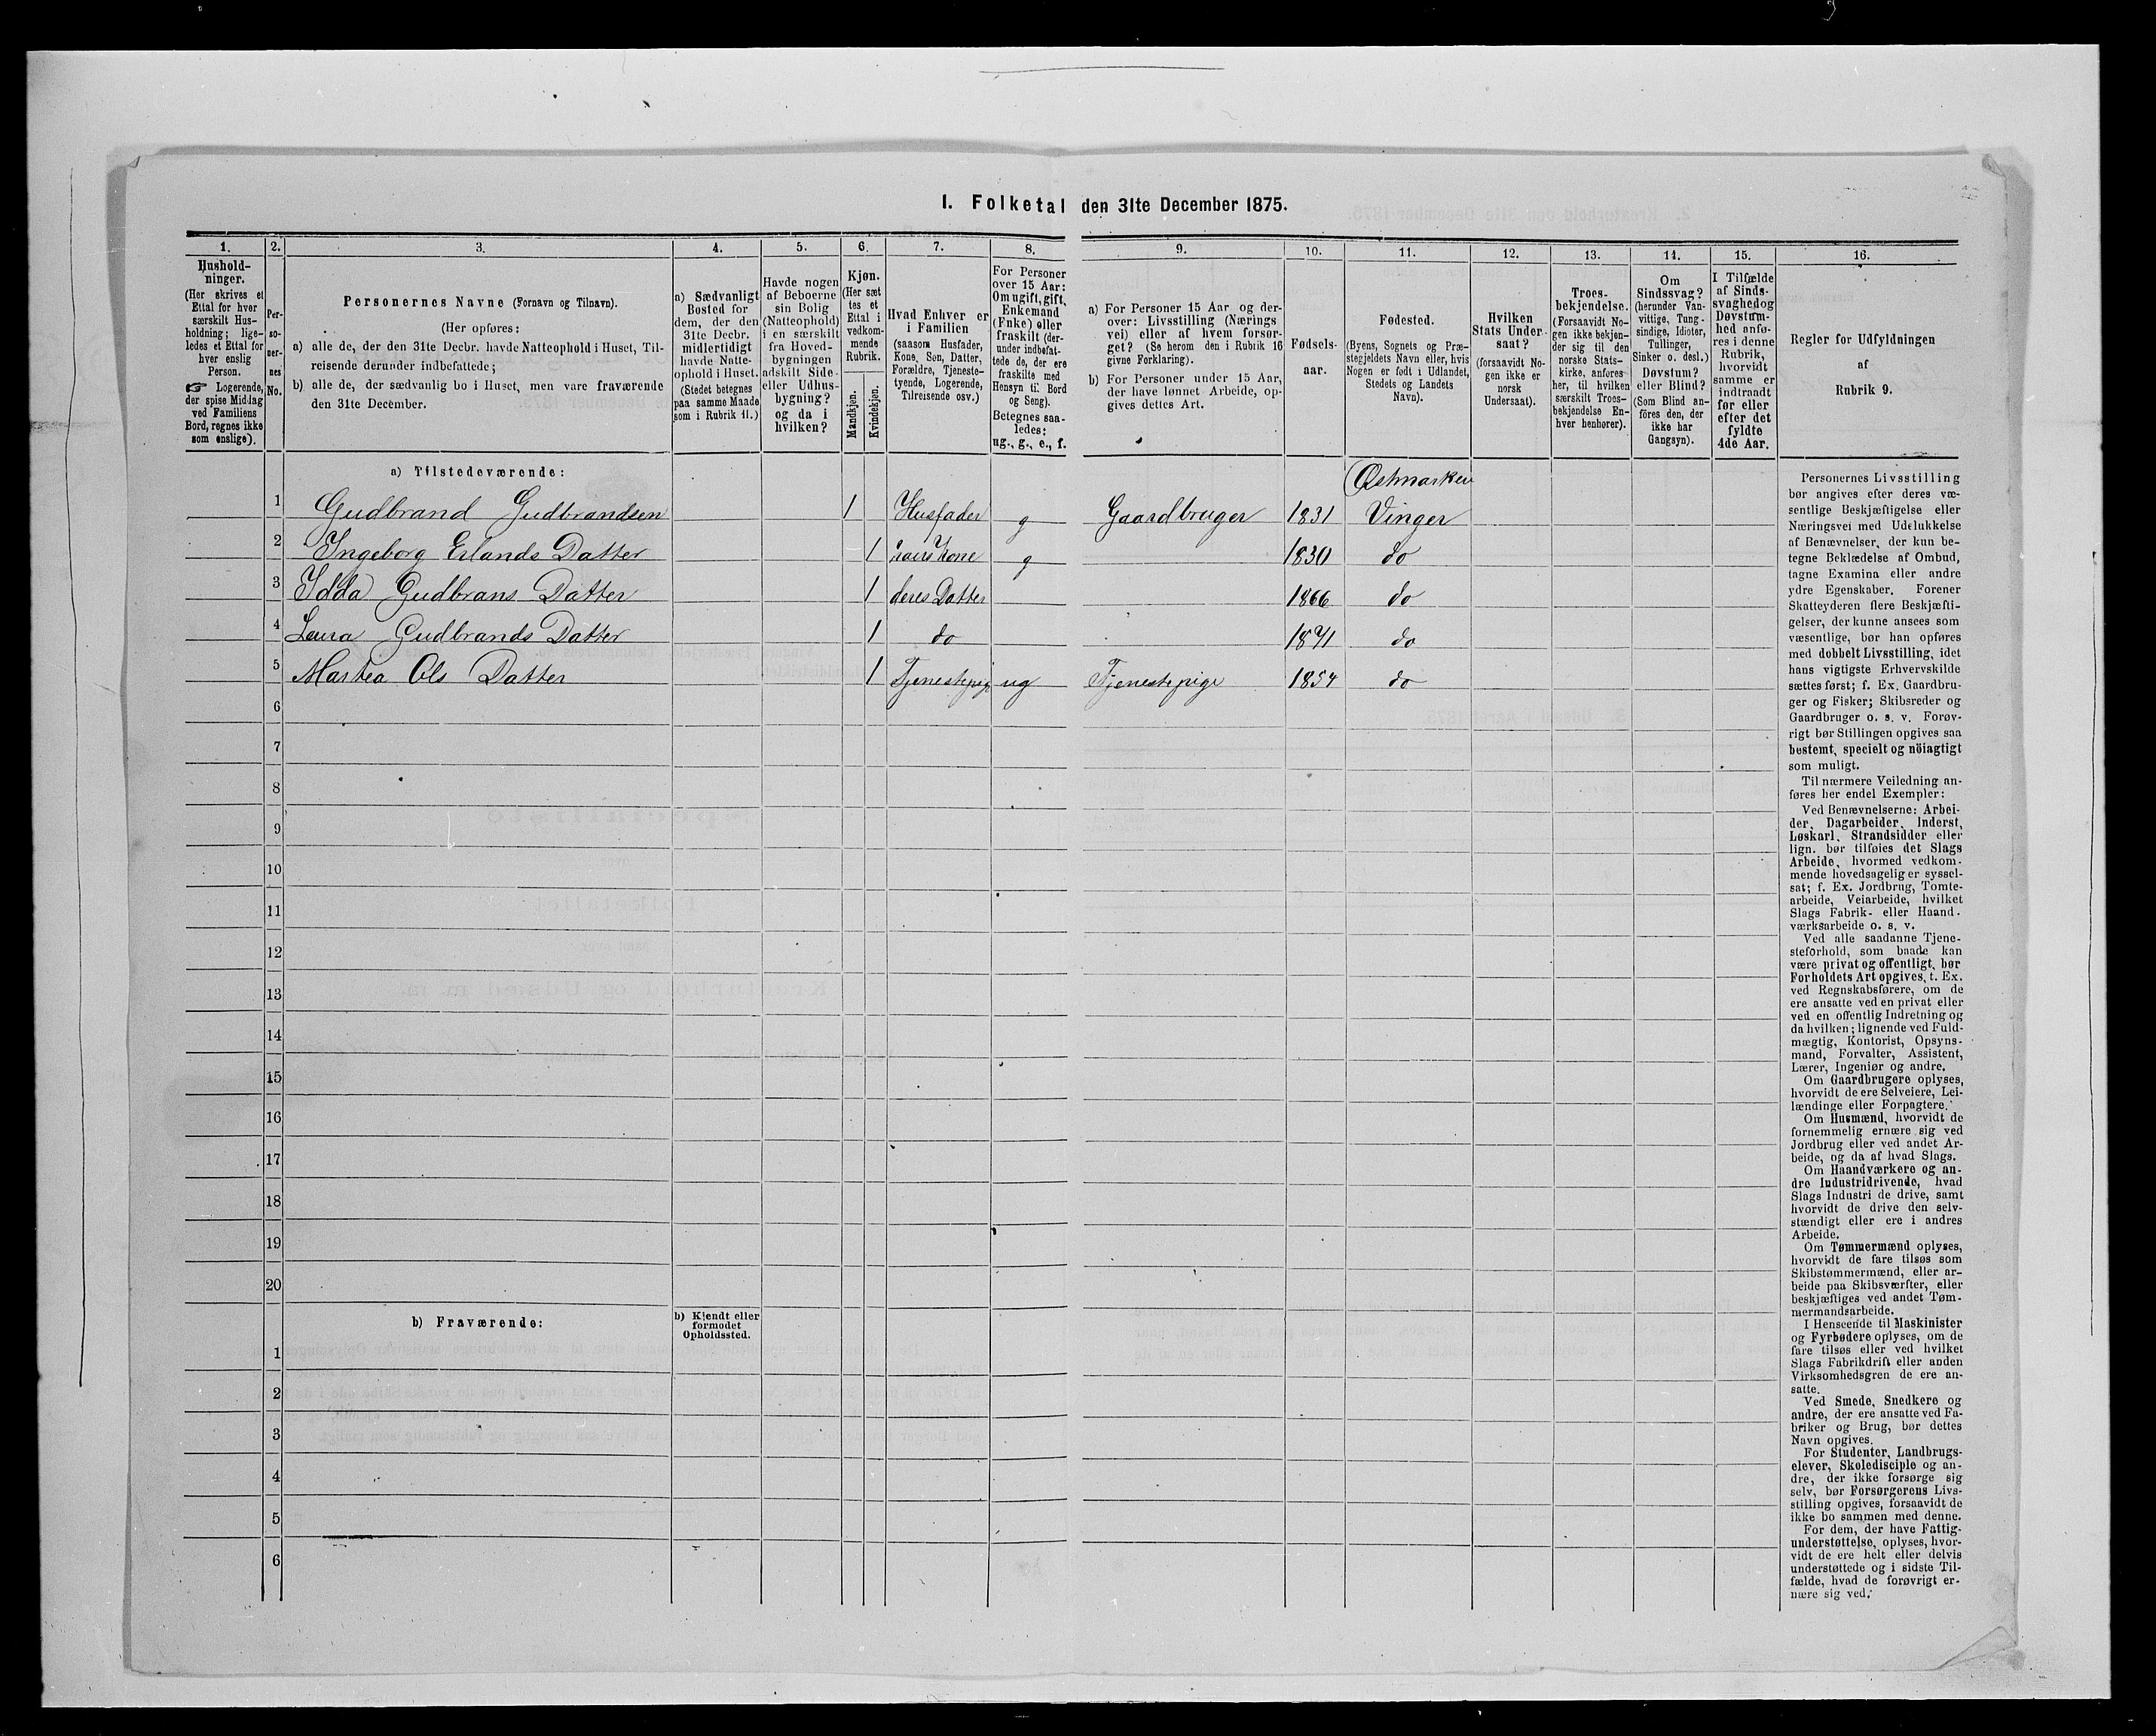 I. Folketal den 31te December 1875.
1.
2.
3.
4.
5.
6.
7.
8.
9.
10.
11.
12.
13.
14.
15.
16.
Hushold-
ninger.
(Her skrives et
Ettal for hver
særskilt Hus-
holdning; lige-
ledes et Ettal for
hver enslig
Person.
☞ Logerende,
der spise Middag
ved Familiens
Bord, regnes ikke
som enslige).
Per-
so-
ner-
nes
No.
Personernes Navne (Fornavn og Tilnavn).
(Her opføres:
a) alle de, der den 31te Decbr. havde Natteophold i Huset, Til-
reisende derunder indbefattede;
b) alle de, der sædvanlig bo i Huset, men vare fraværende
den 31te December.
a) Sædvanligt
Bosted for
dem, der den
31te Decbr.
midlertidigt
havde Natte-
ophold i Huset.
(Stedet betegnes
paa samme Maade
som i Rubrik 11.)
Havde nogen
af Beboerne
sin Bolig
(Natteophold)
i en særskilt
fra Hoved-
bygningen
adskilt Side-
eller Udhus-
bygning?
og da i
hvilken?
Kjøn.
(Her sæt
tes et
Ettal i
vedkom-
mende
Rubrik.
Mandkjøn.
Kvindekjøn.
Hvad Enhver er
i Familien
(saasom Husfader,
Kone, Søn, Datter,
Forældre, Tjeneste-
tyende, Logerende,
Tilreisende osv.)
For Personer
over 15 Aar:
Om ugift, gift,
Enkemand
(Enke) eller
fraskilt (der-
under indbefat-
tede de, der ere
fraskilte med
Hensyn til Bord
og Seng).
Betegnes saa-
ledes:
ug., g., e., f.
a) For Personer 15 Aar og der-
over: Livsstilling (Nærings
vei) eller af hvem forsør-
get? (Se herom den i Rubrik 16
givne Forklaring).
b) For Personer under 15 Aar,
der have lønnet Arbeide, op-
gives dettes Art.
Fødsels-
aar.
Fødested.
(Byens, Sognets og Præ-
stegjeldets Navn eller, hvis
Nogen er født i Udlandet,
Stedets og Landets
Navn).
Hvilken
Stats Under-
saat?
(forsaavidt No-
gen ikke er
norsk
Undersaat).
Troes-
bekjendelse.
(Forsaavidt No-
gen ikke bekjen-
der sig til den
norske Stats-
kirke, anføres
her, til hvilken
særskilt Troes-
bekjendelse En-
hver henhører).
Om
Sindssvag?
(herunder Van-
vittige, Tung-
sindige, Idioter,
Tullinger,
Sinker o. desl.)
Døvstum?
eller Blind?
(Som Blind an-
føres den, der
ikke har
Gangsyn).
I Tilfælde
af Sinds-
svaghed og
Døvstum-
hed anfø-
res i denne
Rubrik,
hvorvidt
samme er
indtraadt
før eller
efter det
fyldte
4de Aar.
Regler for Udfyldningen
af
Rubrik 9.
a) Tilstedeværende:
Østmarken
1 Gudbrand Gudbrandsen 1 Husfader g Gaardbruger 1831 Vinger
2 Ingeborg Erlands Datter 1 hans Kone g 1830 do
3 Idda Gudbrans Datter 1 deres Datter 1866 do
4 Laura Gudbrands Datter 1 do 1871 do
5 Marthea Ols Datter 1 Tjenestepig ug Tjenestepige 1854 do
6
7
8
9
10
11
12
13
14
15
16
17
18
19
20
b) Fraværende:
b) Kjendt eller
formodet
Opholdssted.
1
2
3
4
5
6
Personernes Livsstilling
bør angives efter deres væ-
sentlige Beskjæftigelse eller
Næringsvei med Udelukkelse
af Benævnelser, der kun be-
tegne Beklædelse af Ombud,
tagne Examina eller andre
ydre Egenskaber. Forener
Skatteyderen flere Beskjæfti-
gelser, der kunne ansees som
væsentlige, bør han opføres
med dobbelt Livsstilling, idet
hans vigtigste Erhvervskilde
sættes først; f. Ex. Gaardbru-
ger og Fisker; Skibsreder og
Gaardbruger o. s. v. Forøv-
rigt bør Stillingen opgives saa
bestemt, specielt og nöiagtigt
som muligt.
Til nærmere Veiledning an-
føres her endel Exempler:
Ved Benævnelserne: Arbei-
der, Dagarbeider, Inderst,
Løskarl, Strandsidder eller
lign. bør tilføies det Slags
Arbeide, hvormed vedkom-
mende hovedsagelig er syssel-
sat; f. Ex. Jordbrug, Tomte-
arbeide, Veiarbeide, hvilket
Slags Fabrik- eller Haand-
værksarbeide o. s. v.
Ved alle saadanne Tjene-
steforhold, som baade kan
være privat og offentligt, bør
Forholdets Art opgives, t. Ex.
ved Regnskabsførere, om de
ere ansatte ved en privat eller
ved en offentlig Indretning og
da hvilken; lignende ved Fuld-
mægtig, Kontorist, Opsyns-
mand, Forvalter, Assistent,
Lærer, Ingeniør og andre.
Om Gaardbrugere oplyses,
hvorvidt de ere Selveiere, Lei-
lændinge eller Forpagtere.
Om Husmænd, hvorvidt de
fornemmelig ernære sig ved
Jordbrug eller ved andet Ar-
beide, og da af hvad Slags.
Om Haandværkere og an-
dre Industridrivende, hvad
Slags Industri de drive, samt
hvorvidt de drive den selv-
stændigt eller ere i andres
Arbeide.
Om Tømmermænd oplyses,
hvorvidt de fare tilsøs som
Skibstømmermænd, eller ar-
beide paa Skibsværfter, eller
beskjæftiges ved andet Tøm-
mermandsarbeide.
I Henseende til Maskinister
og Fyrbødere oplyses, om de
fare tilsøs eller ved hvilket
Slags Fabrikdrift eller anden
Virksomhedsgren de ere an-
satte.
Ved Smede, Snedkere og
andre, der ere ansatte ved Fa-
briker og Brug, bør dettes
Navn opgives.
For Studenter, Landbrugs-
elever, Skoledisciple og an-
dre, der ikke forsørge sig
selv, bør Forsørgerens Livs-
stilling opgives, forsaavidt de
ikke bo sammen med denne.
For dem, der have Fattig-
understøttelse, oplyses, hvor-
vidt de ere helt eller delvis
understøttede og i sidste Til-
fælde, hvad de forøvrigt er-
nære sig ved.